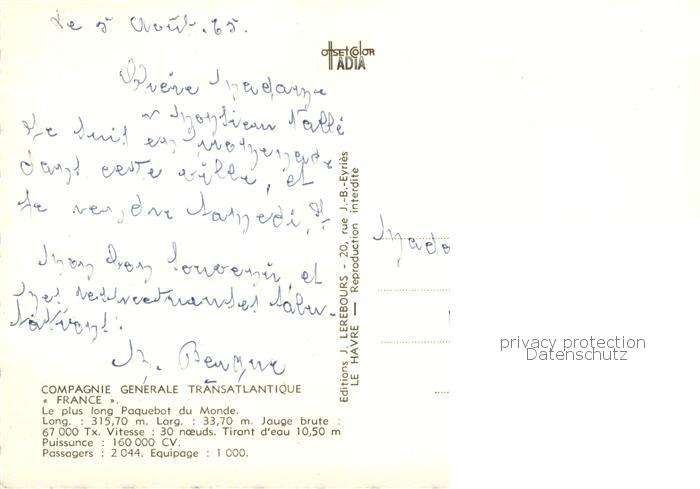 Le 5 Août. 65.
OFFSETCOLOR
IADIA
Chère Madame
et Monsieur Vallé
Je suis en promenade
dans cette ville, et
je rendre samedi.
Mon bon souvenir, et
mes respectueuses salu-
tations.
M.
Mada
Editions J. LEREBOURS - 20, rue J.-B.-Eyriès
LE HAVRE — Reproduction interdite
privacy protection
Datenschutz
COMPAGNIE GÉNÉRALE TRANSATLANTIQUE
« FRANCE ».
Le plus long Paquebot du Monde.
Long. : 315,70 m. Larg. : 33,70 m. Jauge brute :
67 000 Tx. Vitesse : 30 nœuds. Tirant d'eau 10,50 m
Puissance : 160 000 CV.
Passagers : 2 044. Equipage : 1 000.